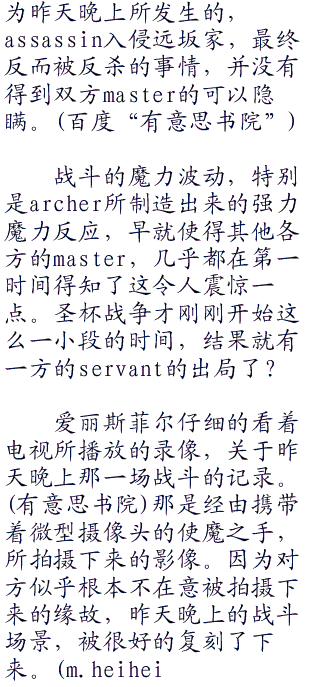 为昨天晚上所发生的，
assassin入侵远坂家，最终
反而被反杀的事情，并没有
得到双方master的可以隐
瞒。(百度“有意思书院”)
战斗的魔力波动，特别
是archer所制造出来的强力
魔力反应，早就使得其他各
方的master，几乎都在第一
时间得知了这令人震惊一
点。圣杯战争才刚刚开始这
么一小段的时间，结果就有
一方的servant的出局了？
爱丽斯菲尔仔细的看着
电视所播放的录像，关于昨
天晚上那一场战斗的记录。
(有意思书院)那是经由携带
着微型摄像头的使魔之手，
所拍摄下来的影像。因为对
方似乎根本不在意被拍摄下
来的缘故，昨天晚上的战斗
场景，被很好的复刻了下
来。(m.heihei